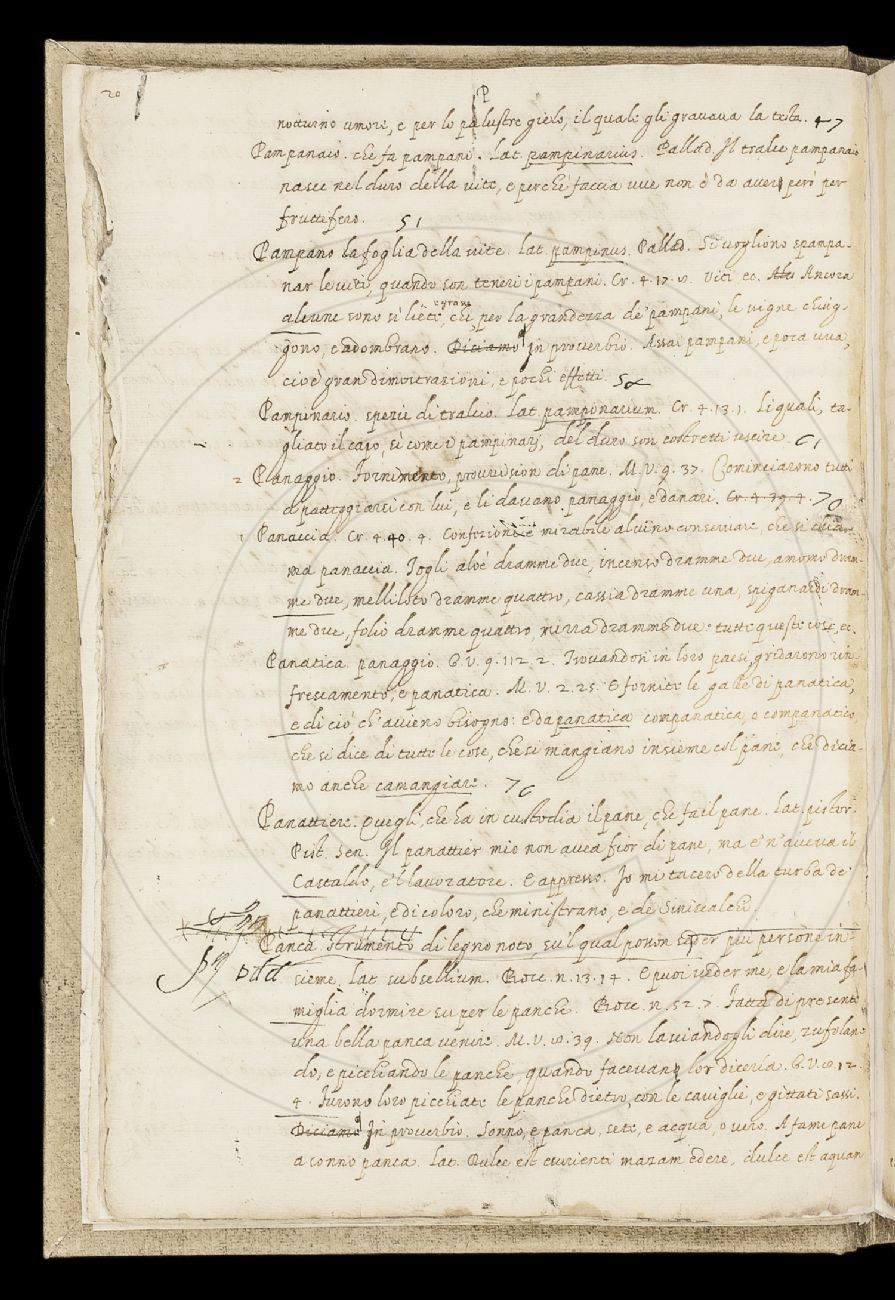 20
P
notturno umore, e per lo palustre gielo, il quale gli gravava la testa. 47
Pampanaio. che fa pampani. Lat. pampinarius. Pallad. Il tralce pampanaio
nasce nel duro della vite, e perchè faccia uve non è da aver però per
fruttifero. 51
Pampano la foglia della vite. lat. pampinus. Pallad. Si vogliono spampa-
nar le viti, quando son teneri i pampani. Cr. 4. 17. Viti ec. Ancora
alcune sono sì liete, che per la grandezza de' pampani, le vigne chiug-
gono, e adombrano. Diciamo In proverbio. Assai pampani, e poca uva,
cioè gran dimostrazioni, e pochi effetti.
Pampinario. spezie di tralcio. Lat. pamponarium. Cr. 4. 13. 1. Li quali, ta-
gliato il capo, sì come i pampinarj, del duro son costretti uscire. 61
2 Panaggio. Fornimento, provvision di pane. M. V. 9. 37. Cominciarono tutti
a patteggiarsi con lui, e li davano panaggio, e danari. Cr. 4. 39. 4. 70
1 Panaccia. Cr. 4. 40. 4. Confezione mirabile al vino conservare, che si chia-
ma panaccia. Togli aloè dramme due, incenso dramme due, amomo dram-
me due, melliloto dramme quattro, cassia dramme una, spiganardi dram-
me due, folio dramme quattro, mirra dramme due: tutte queste cose, ec.
Panatica. panaggio. G. V. 9. 112. 2. Trovandosi in loro paesi, gridarono rin-
frescamento, e panatica. M. V. 2. 25. E fornite le galee di panatica,
e di ciò ch' avieno bisogno: e da panatica companatica, o companatico,
che si dice di tutte le cose, che si mangiano insieme col pane, che dicia-
mo anche camangiare. 76
Panattiere. Quegli, che ha in custodia il pane, che fa il pane. Lat. pistor.
Pist. Sen. Il panattier mio non avea fior di pane, ma e' n' aveva il
Castaldo, e 'l lavoratore. E appresso. Io mi tacerò della turba de'
panattieri, e di coloro, che ministrano, e de' Siniscalchi.
Panca Strumento di legno noto, su 'l qual posson seder più persone in-
sieme, lat. subsellium. Bocc. n. 13. 14. E puoi veder me, e la mia fa-
miglia dormire su per le panche. Bocc. n. 52. 7. Fatta di presente
una bella panca venire. M. V. 8. 39. Non lasciandogli dire, zufolan-
do, e picchiando le panche, quando facevano lor diceria. G. V. 8. 12.
4. Furono loro picchiate le panche dietro, con le caviglie, e gittati sassi.
Diciamo In proverbio. Sonno, e panca, sete, e acqua, o vero. A fame pane
a sonno panca. Lat. Dulce est esurienti mazam edere, dulce est aquam